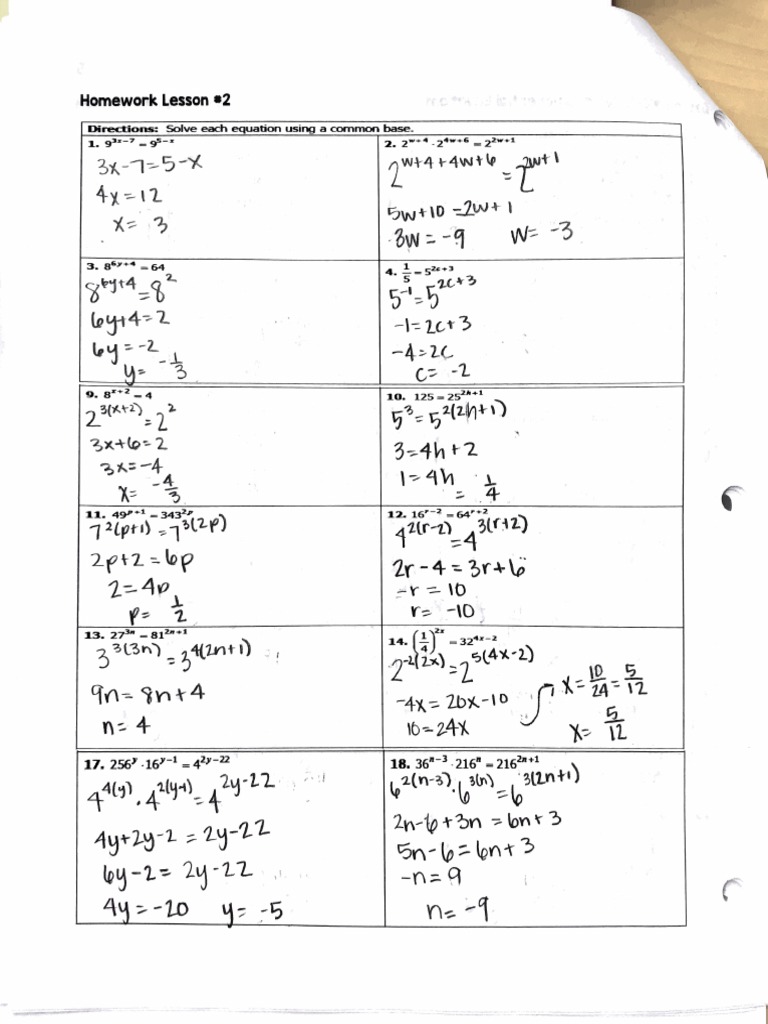 Homework Lesson #2
Directions: Solve each equation using a common base.
1. 9^(3x−7) = 9^(5−x)
3x−7=5−x
4x=12
x= 3
2. 2^(w+4) · 2^(4w+6) = 2^(2w+1)
2^(w+4+4w+6) = 2^(2w+1)
5w+10=2w+1
3w=−9 w= −3
3. 8^(6y+4) = 64
8^(6y+4)=8^2
6y+4=2
6y=−2
y= −1/3
4. 1/5 = 5^(2c+3)
5^(−1)=5^(2c+3)
−1=2c+3
−4=2c
c= −2
9. 8^(x+2) = 4
2^(3(x+2))=2^2
3x+6=2
3x=−4
x= −4/3
10. 125 = 25^(2h+1)
5^3=5^(2(2h+1))
3=4h+2
1=4h
= 1/4
11. 49^(p+1) = 343^(2p)
7^(2(p+1))=7^(3(2p))
2p+2=6p
2=4p
p= 1/2
12. 16^(r−2) = 64^(r+2)
4^(2(r−2))=4^(3(r+2))
2r−4=3r+6
−r=10
r= −10
13. 27^(3n) = 81^(2n+1)
3^(3(3n))=3^(4(2n+1))
9n=8n+4
n=4
14. (1/4)^(2x) = 32^(4x−2)
2^(−2(2x))=2^(5(4x−2))
−4x=20x−10
10=24x
x= 10/24 = 5/12
x= 5/12
17. 256^y · 16^(y−1) = 4^(2y−22)
4^(4(y)) · 4^(2(y−1)) = 4^(2y−22)
4y+2y−2=2y−22
6y−2=2y−22
4y=−20 y= −5
18. 36^(n−3) · 216^n = 216^(2n+1)
6^(2(n−3)) · 6^(3(n)) = 6^(3(2n+1))
2n−6+3n=6n+3
5n−6=6n+3
−n=9
n= −9